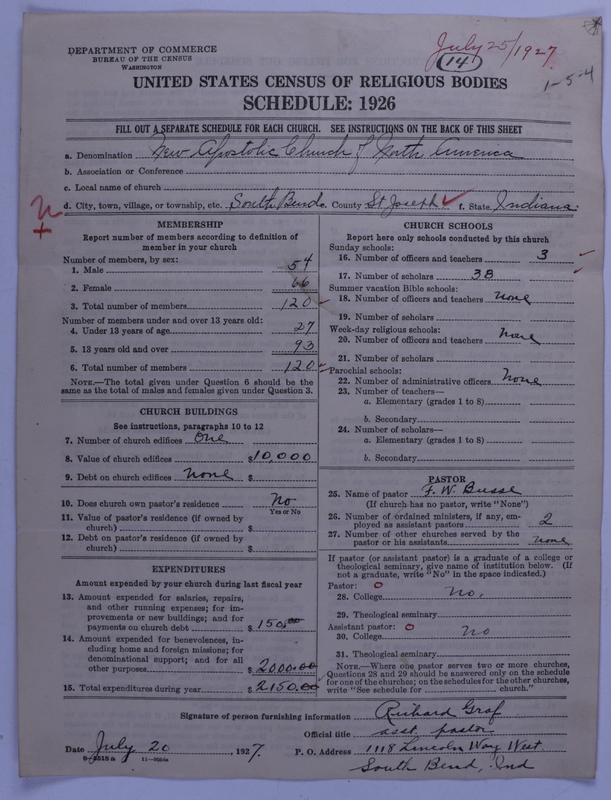 July 25/1927
DEPARTMENT OF COMMERCE
BUREAU OF THE CENSUS
WASHINGTON
(14)
1-5-4
UNITED STATES CENSUS OF RELIGIOUS BODIES
SCHEDULE: 1926
FILL OUT A SEPARATE SCHEDULE FOR EACH CHURCH. SEE INSTRUCTIONS ON THE BACK OF THIS SHEET
a. Denomination New Apostolic Church of North America
b. Association or Conference
c. Local name of church
d. City, town, village, or township, etc. South Bend e. County St Joseph f. State Indiana
MEMBERSHIP
Report number of members according to definition of
member in your church
Number of members, by sex:
1. Male 54
2. Female 66
3. Total number of members 120
Number of members under and over 13 years old:
4. Under 13 years of age 27
5. 13 years old and over 93
6. Total number of members 120
NOTE.—The total given under Question 6 should be the
same as the total of males and females given under Question 3.
CHURCH BUILDINGS
See instructions, paragraphs 10 to 12
7. Number of church edifices one
8. Value of church edifices $10,000
9. Debt on church edifices none $
10. Does church own pastor's residence No
Yes or No
11. Value of pastor's residence (if owned by
church) $
12. Debt on pastor's residence (if owned by
church) $
EXPENDITURES
Amount expended by your church during last fiscal year
13. Amount expended for salaries, repairs,
and other running expenses; for im-
provements or new buildings; and for
payments on church debt $150.00
14. Amount expended for benevolences, in-
cluding home and foreign missions; for
denominational support; and for all
other purposes $2000.00
15. Total expenditures during year $2150.00
CHURCH SCHOOLS
Report here only schools conducted by this church
Sunday schools:
16. Number of officers and teachers 3
17. Number of scholars 38
Summer vacation Bible schools:
18. Number of officers and teachers none
19. Number of scholars
Week-day religious schools:
20. Number of officers and teachers none
21. Number of scholars
Parochial schools:
22. Number of administrative officers none
23. Number of teachers—
a. Elementary (grades 1 to 8)
b. Secondary
24. Number of scholars—
a. Elementary (grades 1 to 8)
b. Secondary
PASTOR
25. Name of pastor F. W. Busse
(If church has no pastor, write "None")
26. Number of ordained ministers, if any, em-
ployed as assistant pastors 2
27. Number of other churches served by the
pastor or his assistants none
If pastor (or assistant pastor) is a graduate of a college or
theological seminary, give name of institution below. (If
not a graduate, write "No" in the space indicated.)
Pastor: O
28. College no.
29. Theological seminary
Assistant pastor: O
30. College no
31. Theological seminary
NOTE.—Where one pastor serves two or more churches,
Questions 28 and 29 should be answered only on the schedule
for one of the churches; on the schedules for the other churches,
write "See schedule for church."
Signature of person furnishing information Richard Graf
Official title asst. pastor
Date July 20, 1927. P. O. Address 1118 Lincoln Way West
South Bend, Ind
8-5518a 11-9584a